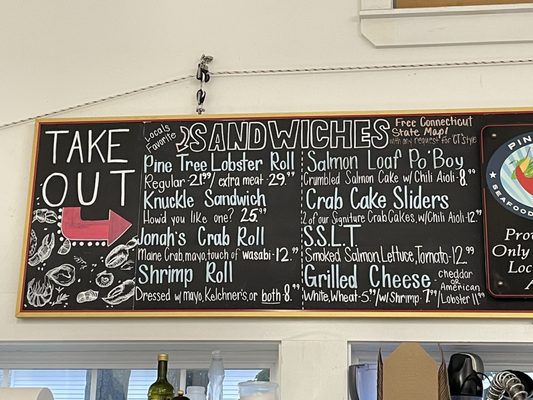 TAKE OUT
Locals Favorite
SANDWICHES
Free Connecticut State Map!
with any request for CT Style
Pine Tree Lobster Roll
Regular 21.99/ extra meat 29.99
Knuckle Sandwich
How'd you like one? 25.99
Jonah's Crab Roll
Maine Crab, mayo, touch of wasabi 12.99
Shrimp Roll
Dressed w/mayo, Kelchner's, or both 8.99
Salmon Loaf Po'Boy
Crumbled Salmon Cake w/Chili Aioli 8.99
Crab Cake Sliders
2 of our Signiture Crab Cakes, w/Chili Aioli 12.99
S.S.L.T
Smoked Salmon, Lettuce, Tomato 12.99
Grilled Cheese cheddar or American
White, Wheat 5.99/w/Shrimp 7.99/Lobster 11.99
PIN
SEAFOOD
Pro
Loca
an